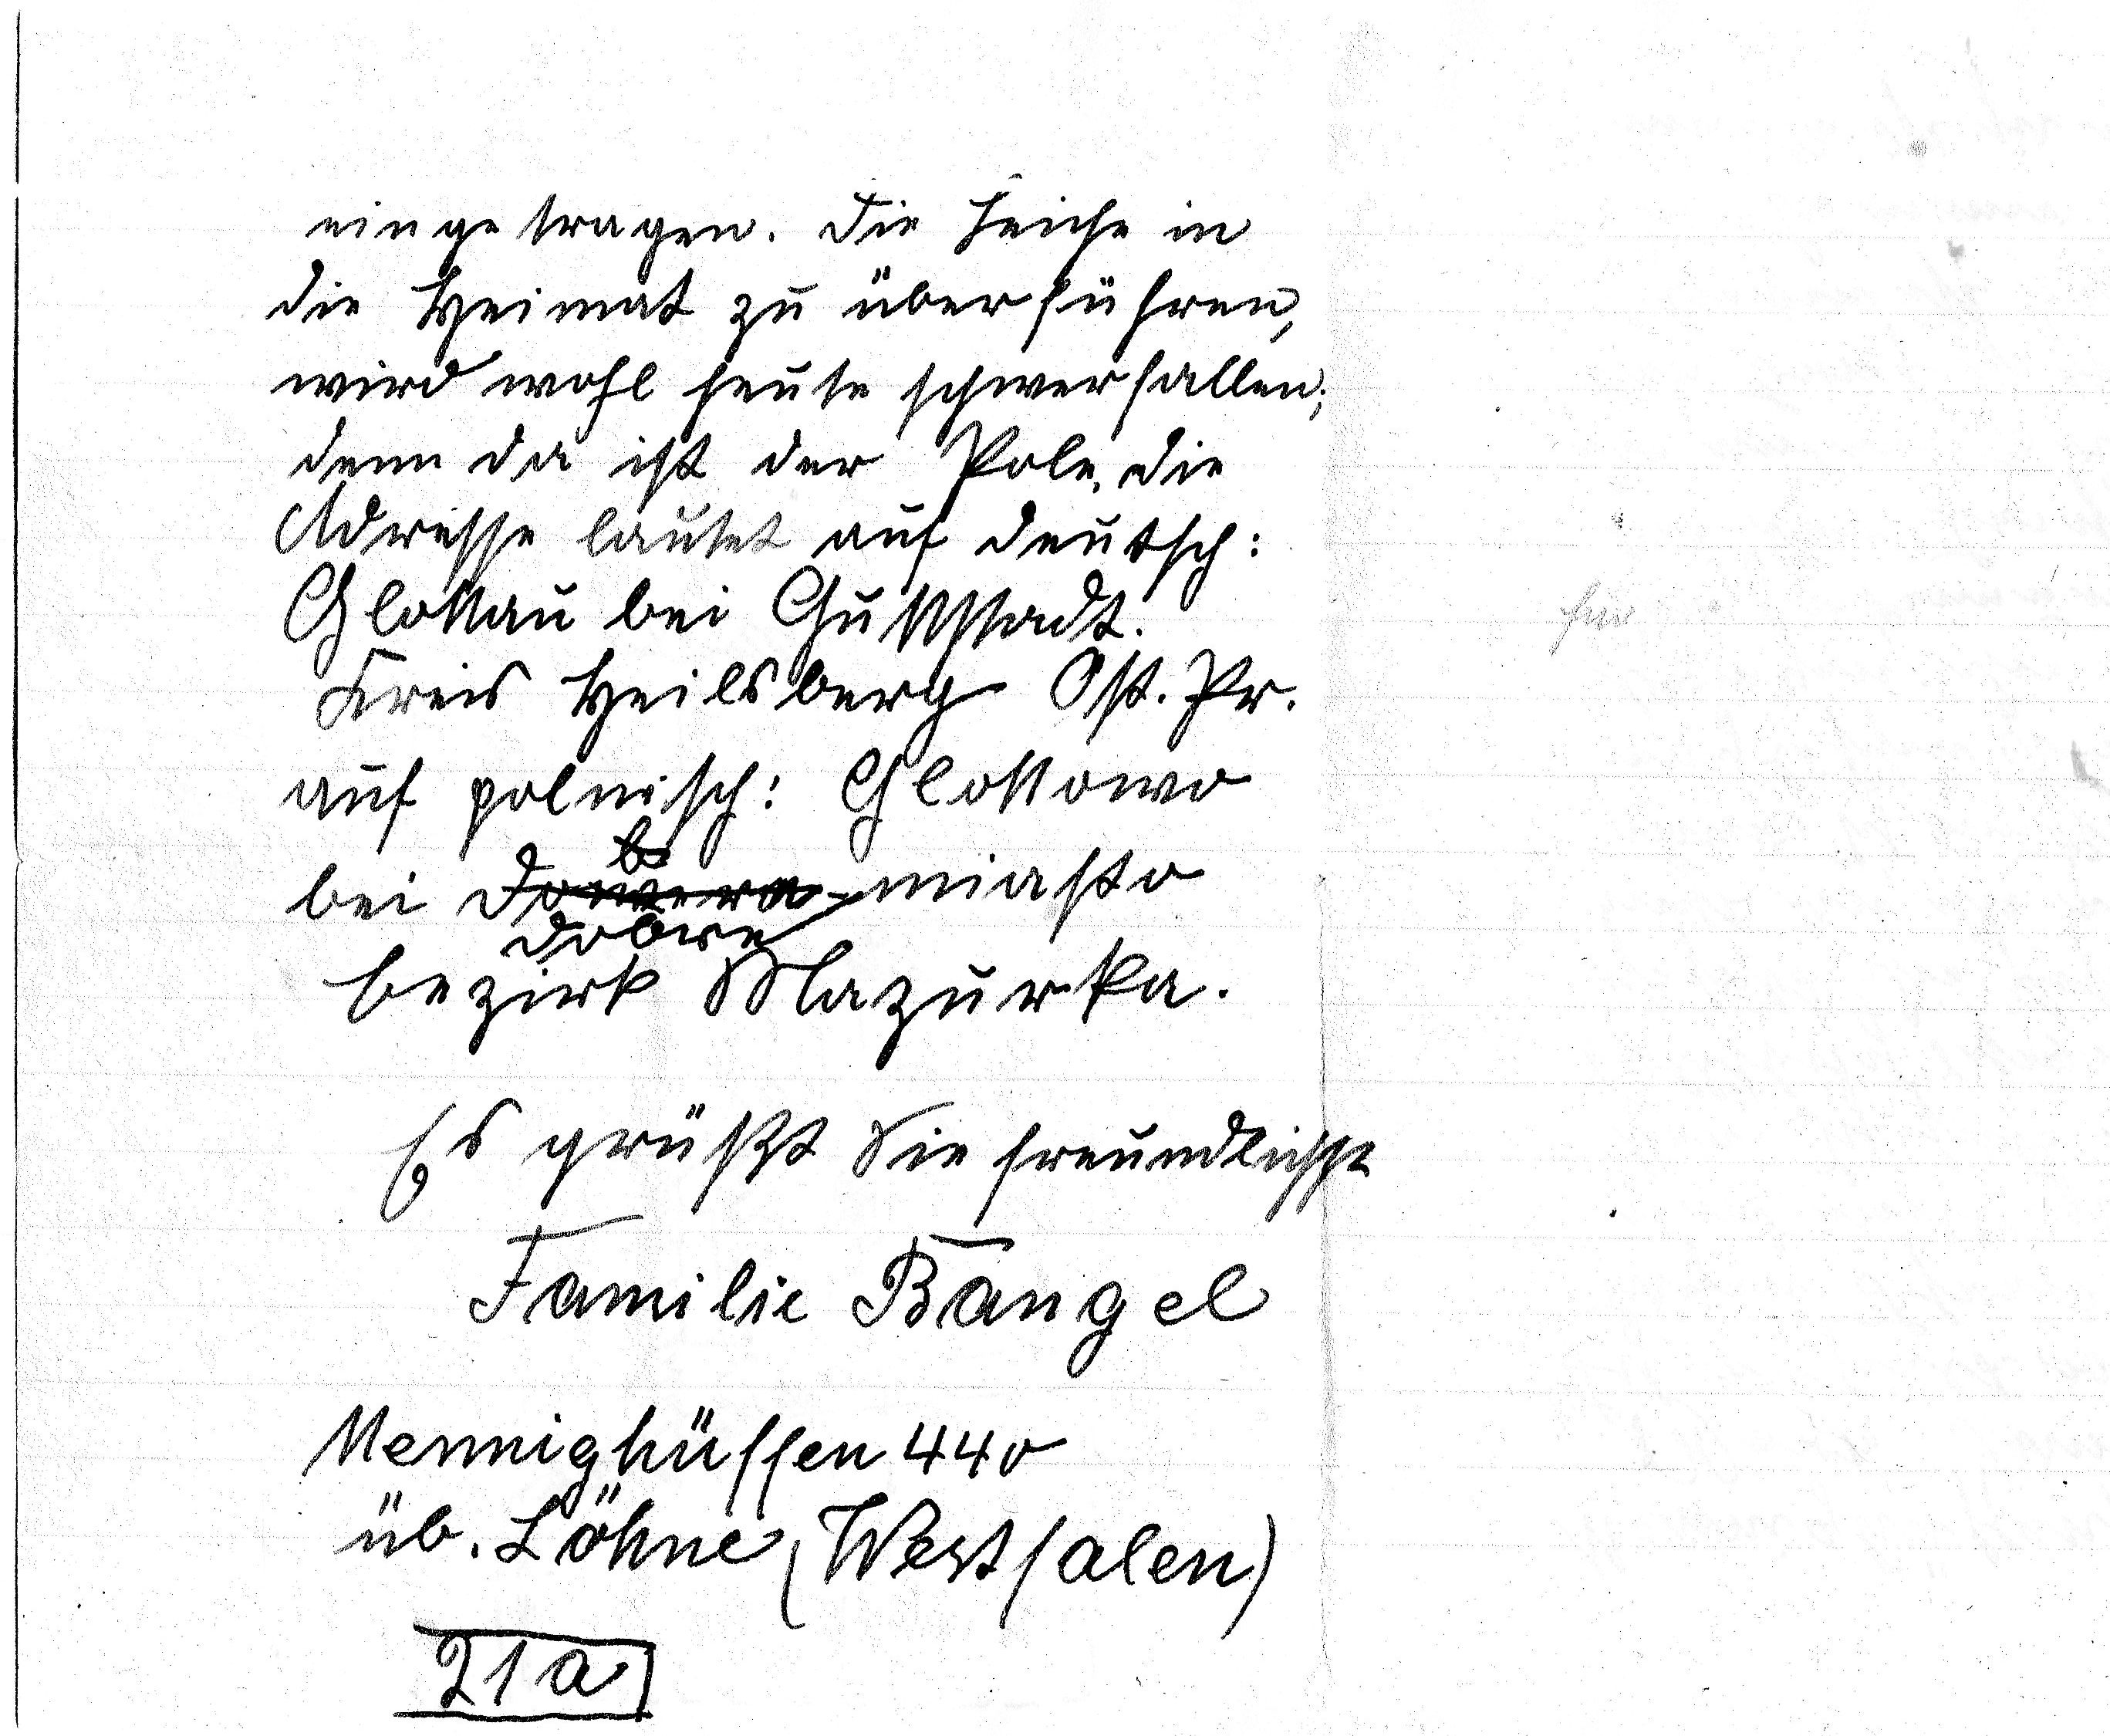 eingetragen. Die Leiche in
die Heimat zu überführen,
wird wohl heute schwerfallen;
denn da ist der Pole. Die
Adresse lautet auf deutsch:
Glottau bei Guttstadt.
Kreis Heilsberg Ost. Pr.
auf polnisch: Glottowo
bei Dobre-miasto
bezirk Mazurka.
Es grüßt Sie freundlichst
Familie Bangel
Mennighüffen 440
üb. Löhne (Westfalen)
21a